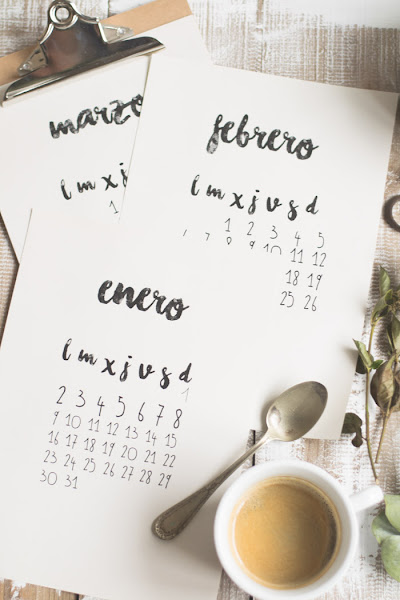 marzo
l m x j
1
febrero
l m x j v s d
1 2 3 4 5
6 7 8 9 10 11 12
18 19
25 26
enero
l m x j v s d
1
2 3 4 5 6 7 8
9 10 11 12 13 14 15
16 17 18 19 20 21 22
23 24 25 26 27 28 29
30 31